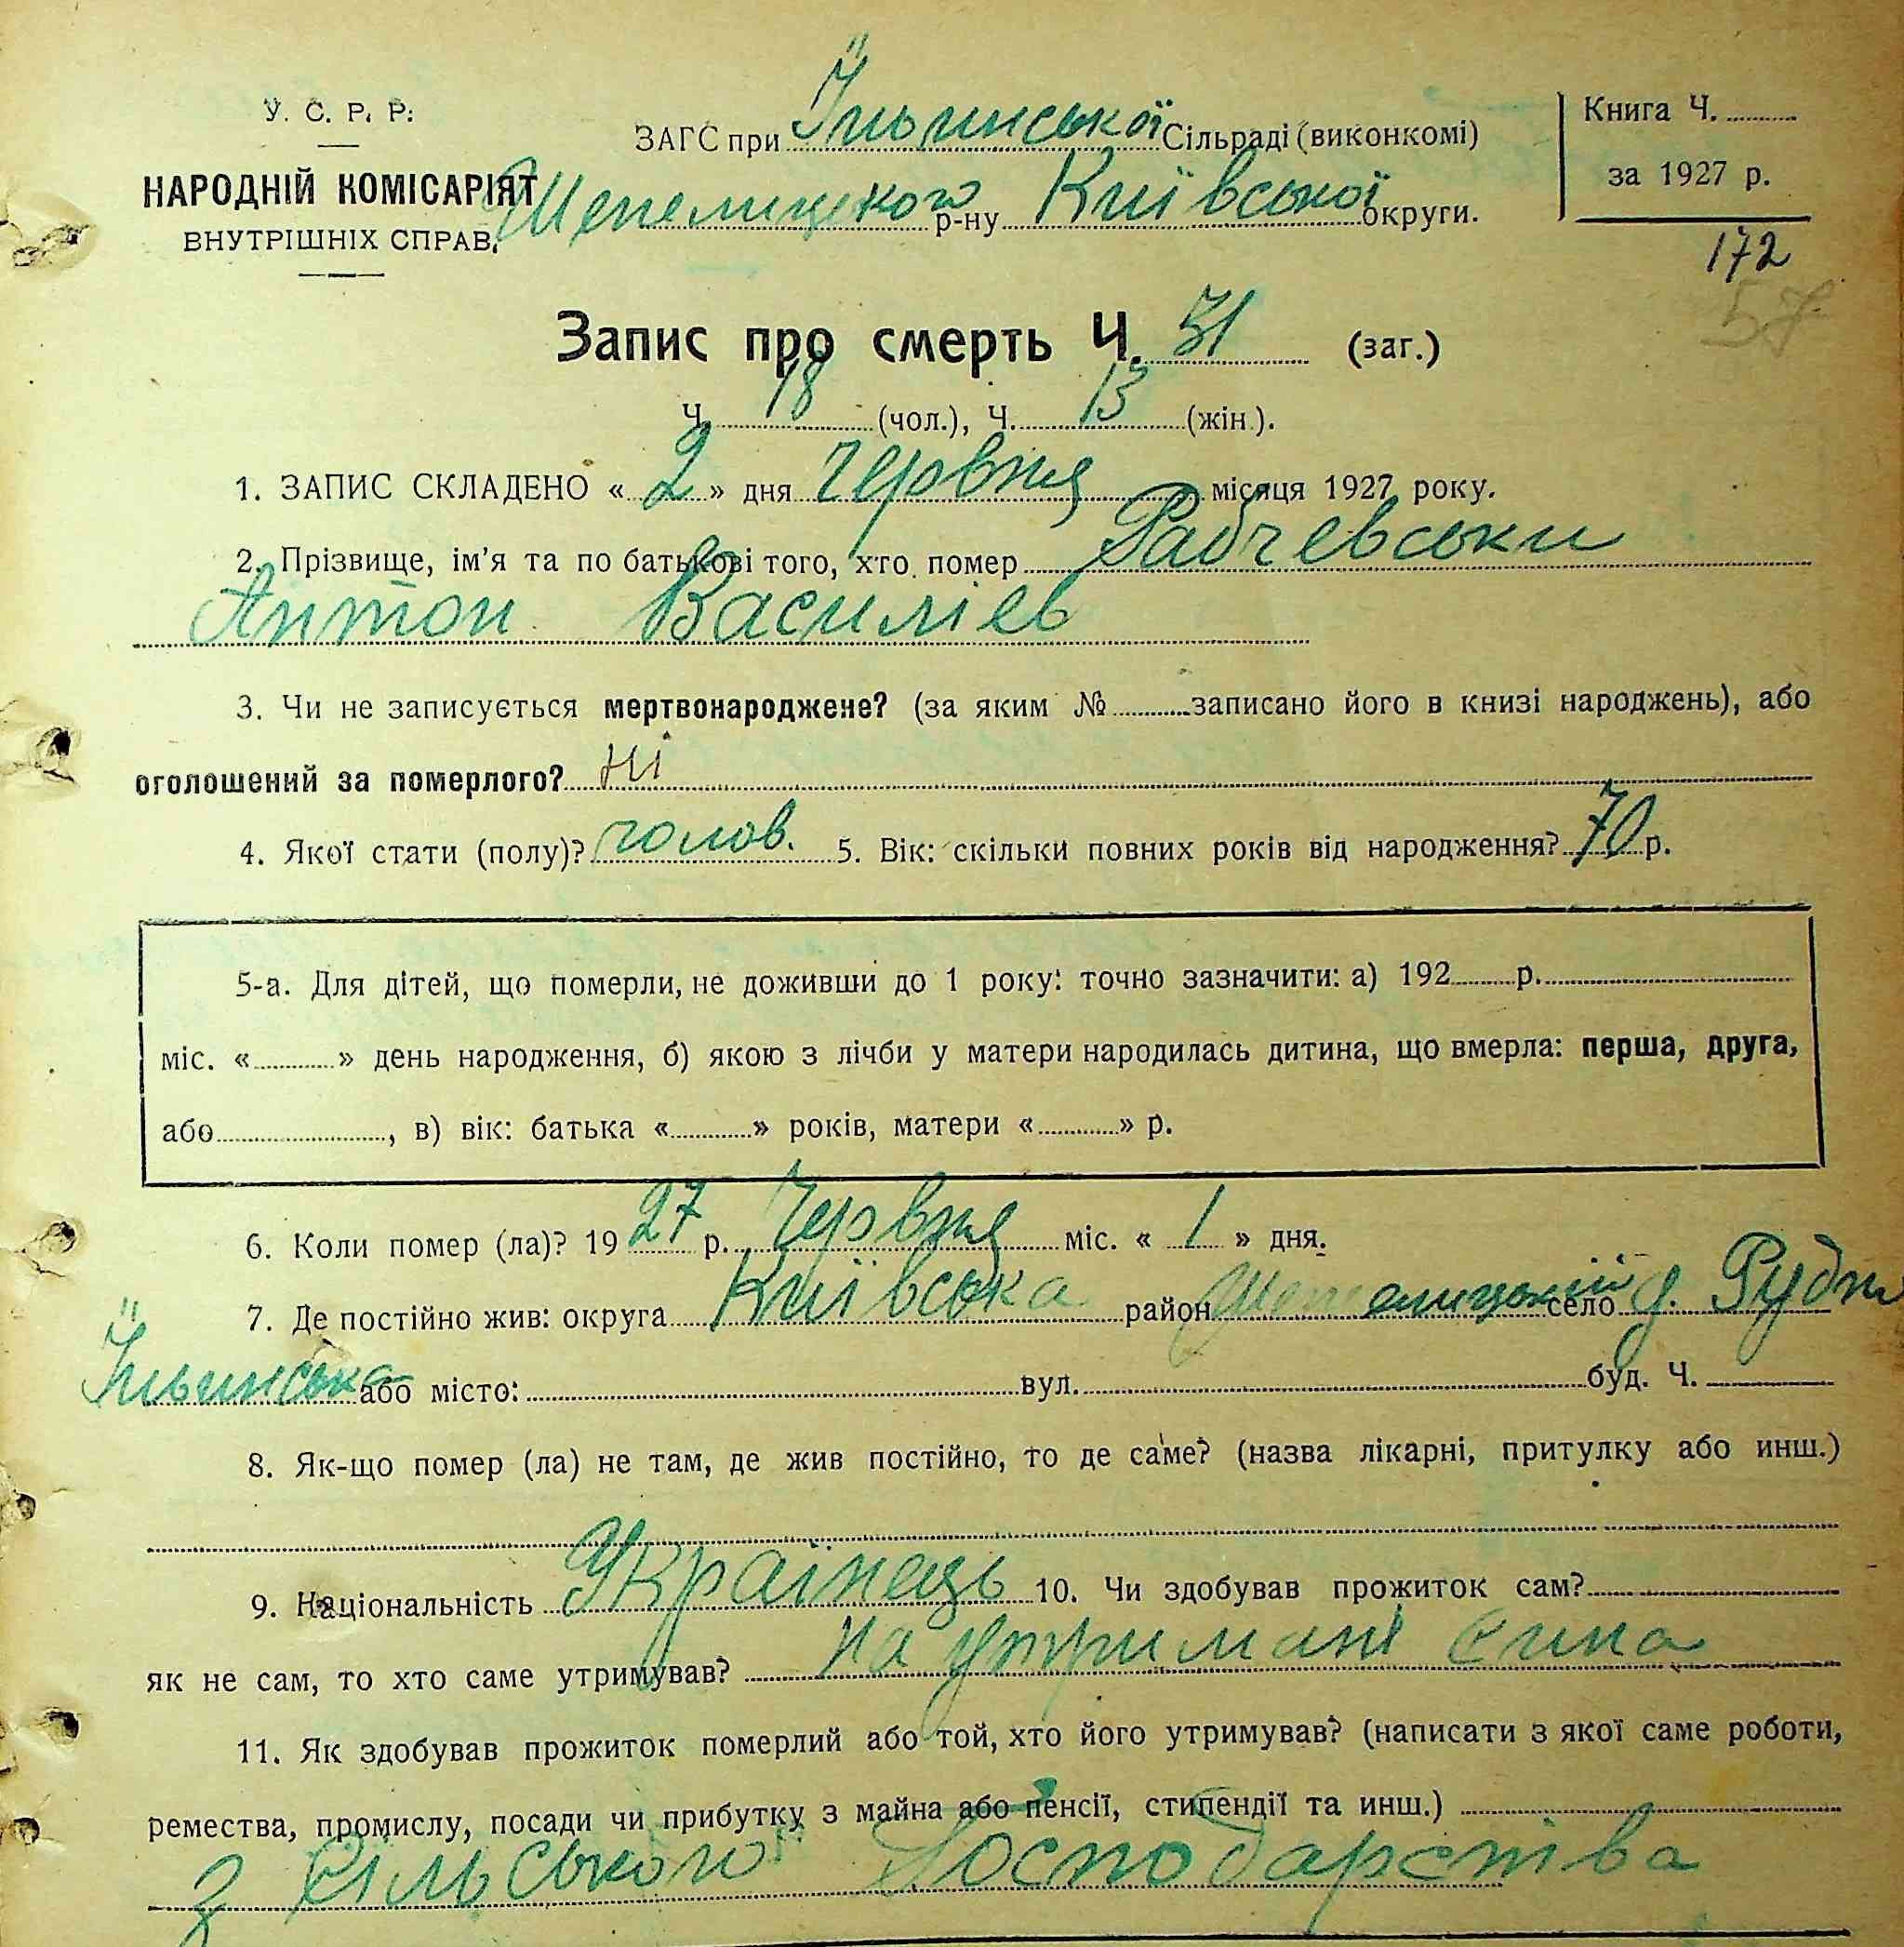 У. С. Р. Р.
НАРОДНІЙ КОМІСАРІЯТ
ВНУТРІШНІХ СПРАВ.
ЗАГС при Їльинської Сільраді (виконкомі)
Шепелицького р-ну Київської округи.
Книга Ч.
за 1927 р.
172
57
Запис про смерть Ч. 31 (заг.)
Ч. 18 (чол.), Ч. 13 (жін.).
1. ЗАПИС СКЛАДЕНО « 2 » дня червня місяця 1927 року.
2. Прізвище, ім’я та по батькові того, хто помер Рабчевськи
Антон Василіев
3. Чи не записується мертвонароджене? (за яким № записано його в книзі народжень), або
оголошений за померлого? Ні
4. Якої стати (полу)? чолов. 5. Вік: скільки повних років від народження? 70 р.
5-а. Для дітей, що померли, не доживши до 1 року: точно зазначити: а) 192 р.
міс. « » день народження, б) якою з лічби у матери народилась дитина, що вмерла: перша, друга,
або , в) вік: батька « » років, матери « » р.
6. Коли помер (ла)? 19 27 р. Червня міс. « 1 » дня.
7. Де постійно жив: округа Київська район Шепелицький село д. Рудня
Їльинська або місто: вул. буд. Ч.
8. Як-що помер (ла) не там, де жив постійно, то де саме? (назва лікарні, притулку або инш.)
9. Національність Українець 10. Чи здобував прожиток сам?
як не сам, то хто саме утримував? На утримані сина
11. Як здобував прожиток померлий або той, хто його утримував? (написати з якої саме роботи,
ремества, промислу, посади чи прибутку з майна або пенсії, стипендії та инш.)
З Сільського Господарства